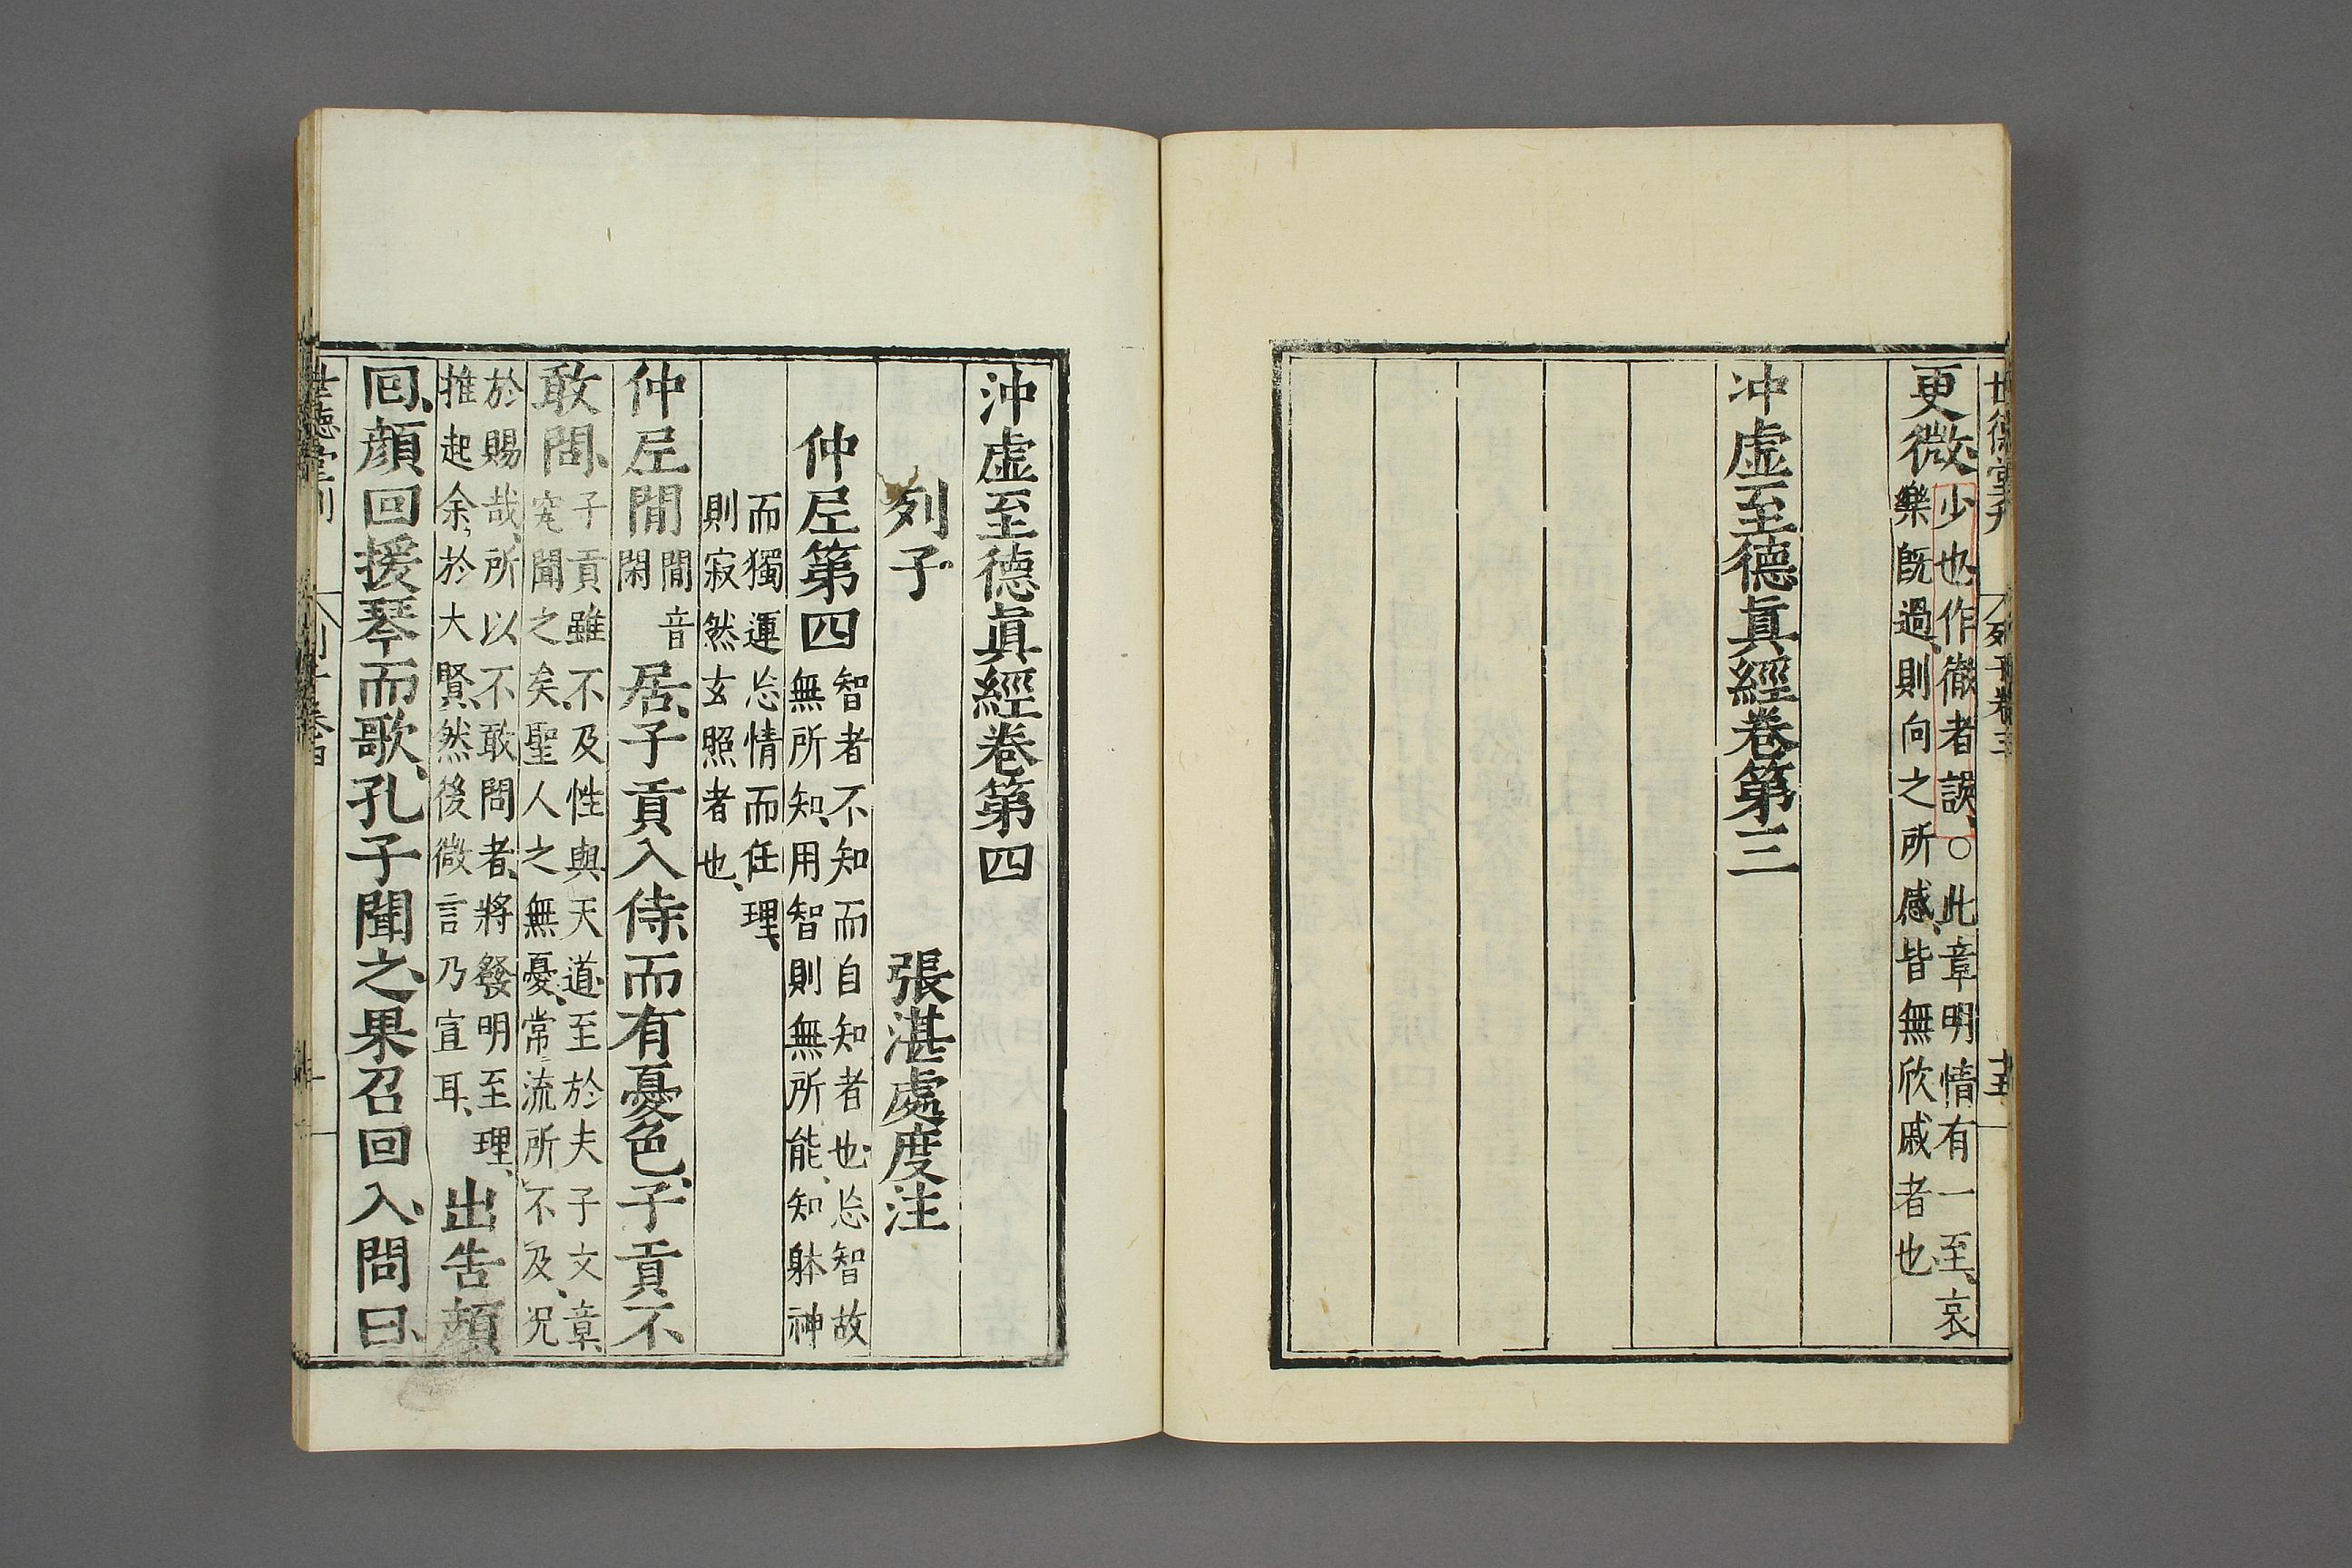 世德堂刊
列子卷三
十五
更微少也作徹者誤○此章明情有一至哀
樂既過則向之所感皆無欣戚者也
冲虛至德眞經卷第三
沖虛至德眞經卷第四
列子
張湛處度注
仲𡰥第四智者不知而自知者也忘智故
無所知用智則無所能知躰神
而獨運忘情而任理
則寂然玄照者也
仲𡰥閒閒音閑居子貢入侍而有憂色子貢不
敢問子貢雖不及性與天道至於夫子文章
究聞之矣聖人之無憂常流所不及況
於賜哉所以不敢問者將發明至理
推起余於大賢然後微言乃宣耳出告顏
回顏回援琴而歌孔子聞之果召回入問曰
世德堂刊
列子卷四
一